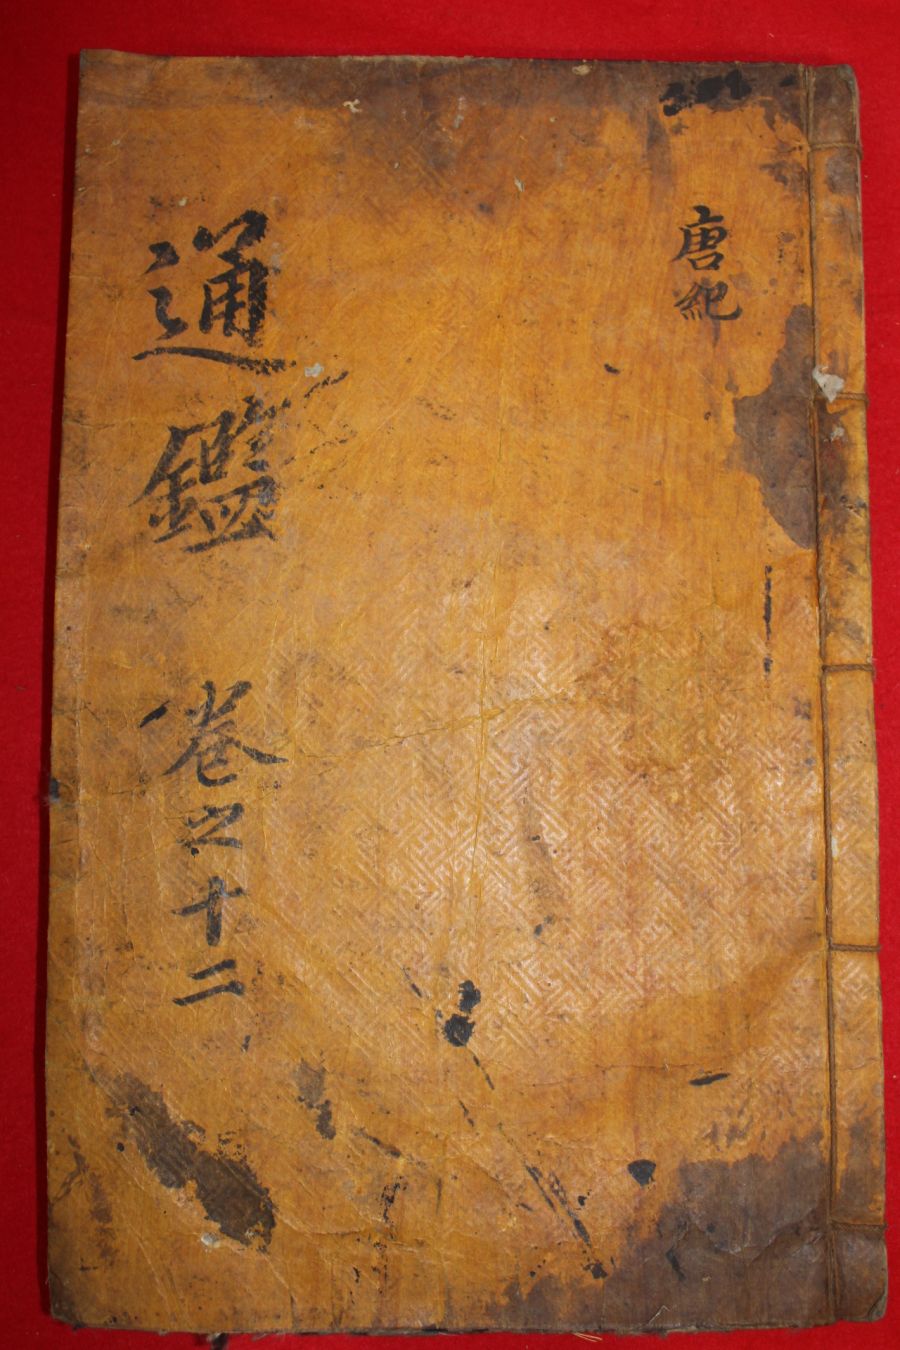 唐紀
通鑑 卷之十二